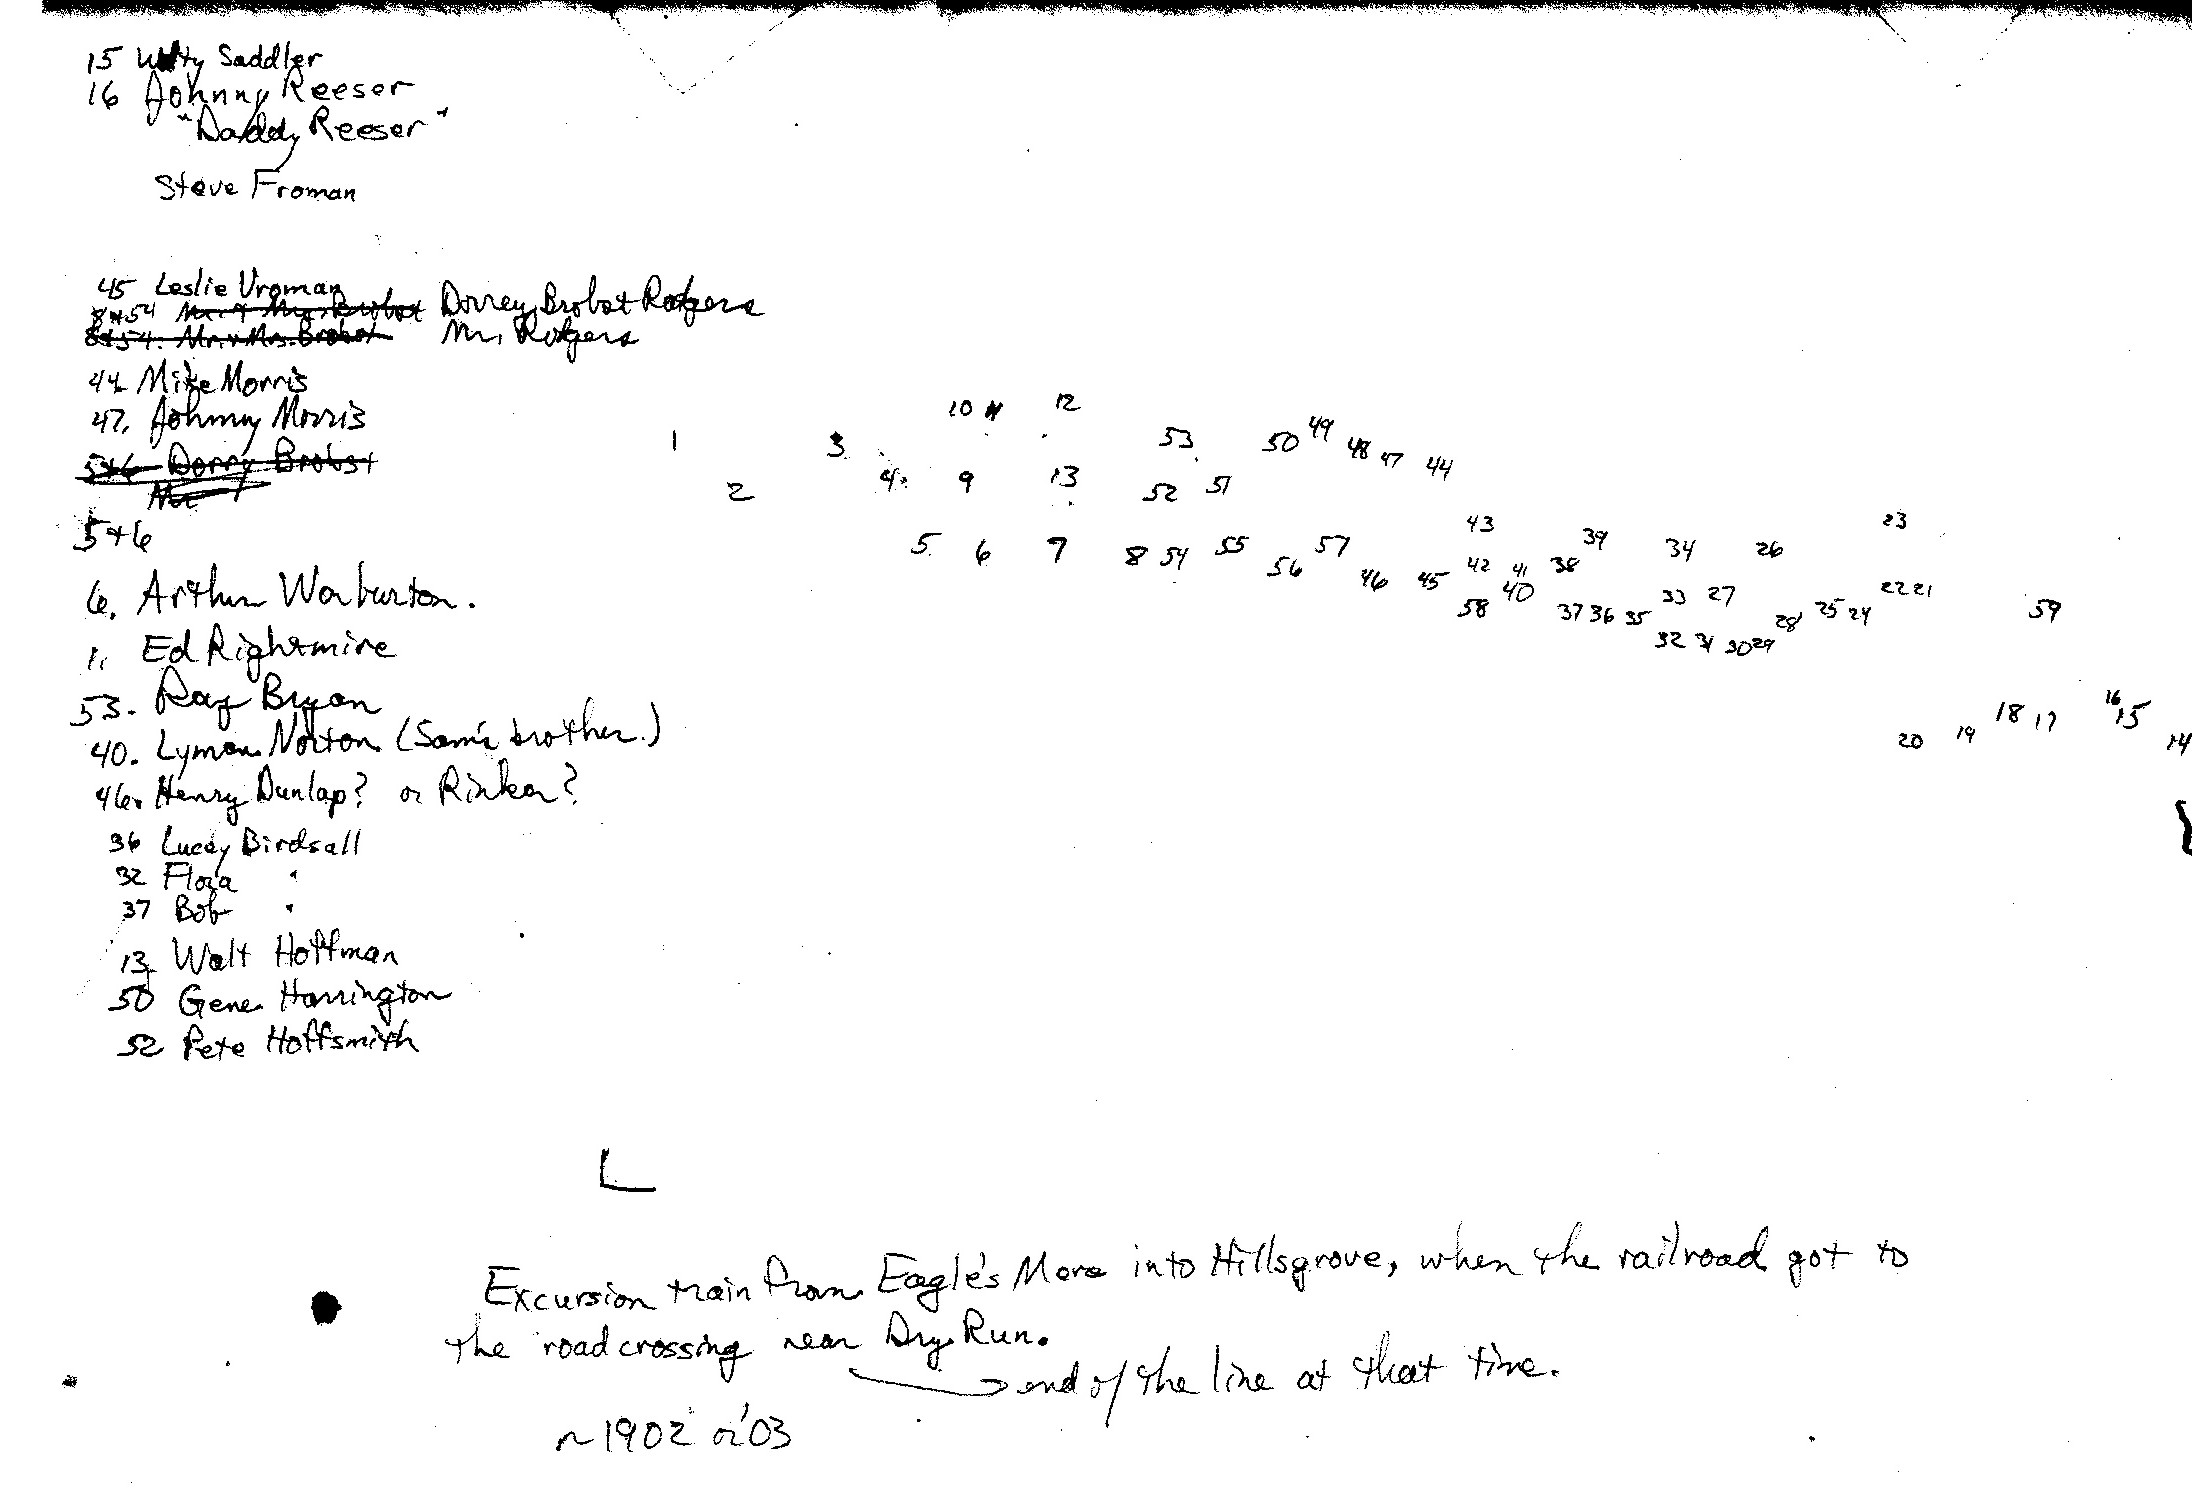 15 Witty Saddler
16 Johnny Reeser
"Daddy Reeser"
Steve Froman
45 Leslie Vroman
8+54 Mr. + Mrs. Brobst Dorrey Brobst Rodgers
8+54. Mr. + Mrs. Brobst Mr. Rodgers
44 Mike Morris
47. Johnny Morris
5+6 Dorry Brobst
Mr
5+6
6. Arthur Warburton.
1. Ed Rightmire
53. Ray Bryan
40. Lyman Norton (Sam's brother.)
46. Henry Dunlap? or Rinker?
36 Lucey Birdsall
32 Flora "
37 Bob "
13. Walt Hoffman
50 Gene Harrington
52 Pete Hoffsmith
10 11 12
1 3 53 50 49 48 47 44
2 4 9 13 52 51
43 39 34 26 23
5 6 7 8 54 55 56 57 46 45 42 41 38
58 40 37 36 35 33 27 28 25 24 22 21 59
32 31 30 29
20 19 18 17 16 15 14
Excursion train from Eagle's Mere into Hillsgrove, when the railroad got to
the road crossing near Dry Run.
end of the line at that time.
~1902 or '03